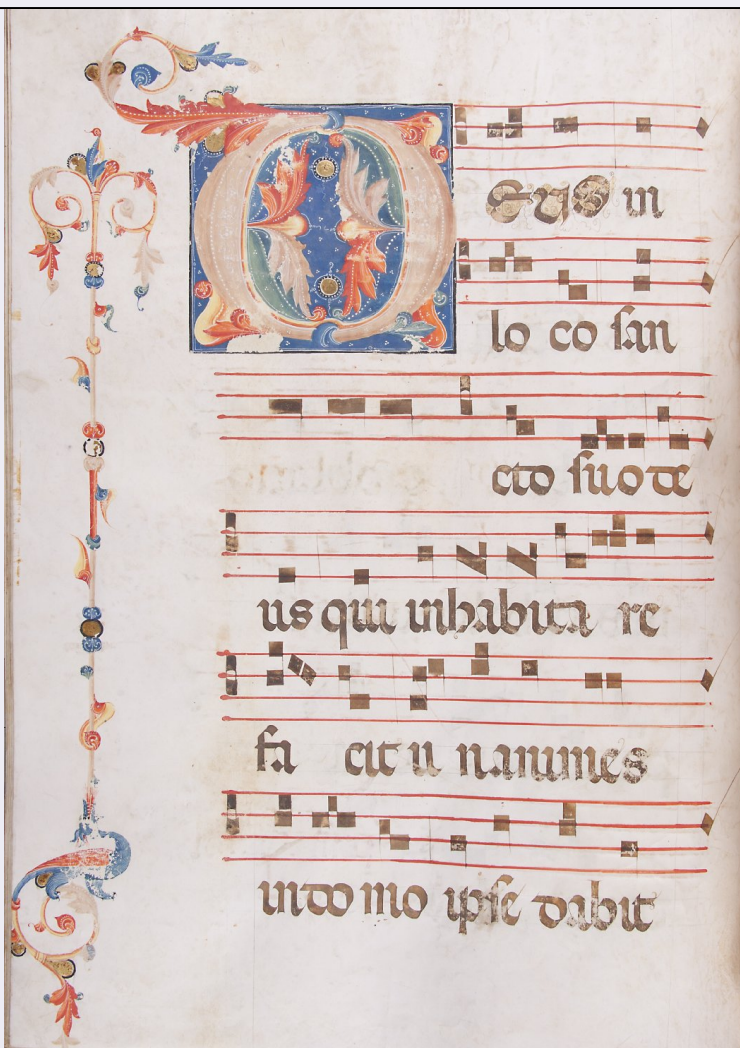 Deus in
lo co san
cto suo de
us qui inhabita re
fa cit u nanimes
in do mo ipse dabit